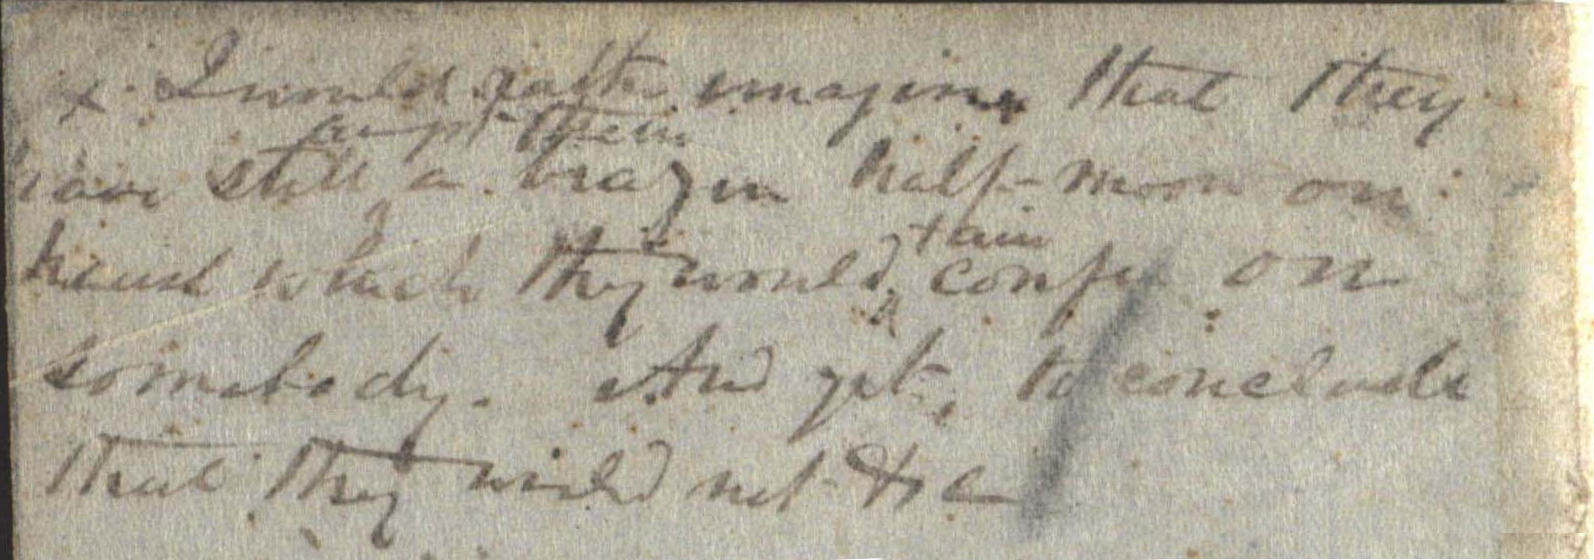 x. I would rather imagine that they
as pr. them
have still a brazen half-moon on
fain
hand which they would confer on
somebody. And yet, to conclude
that they would not &c